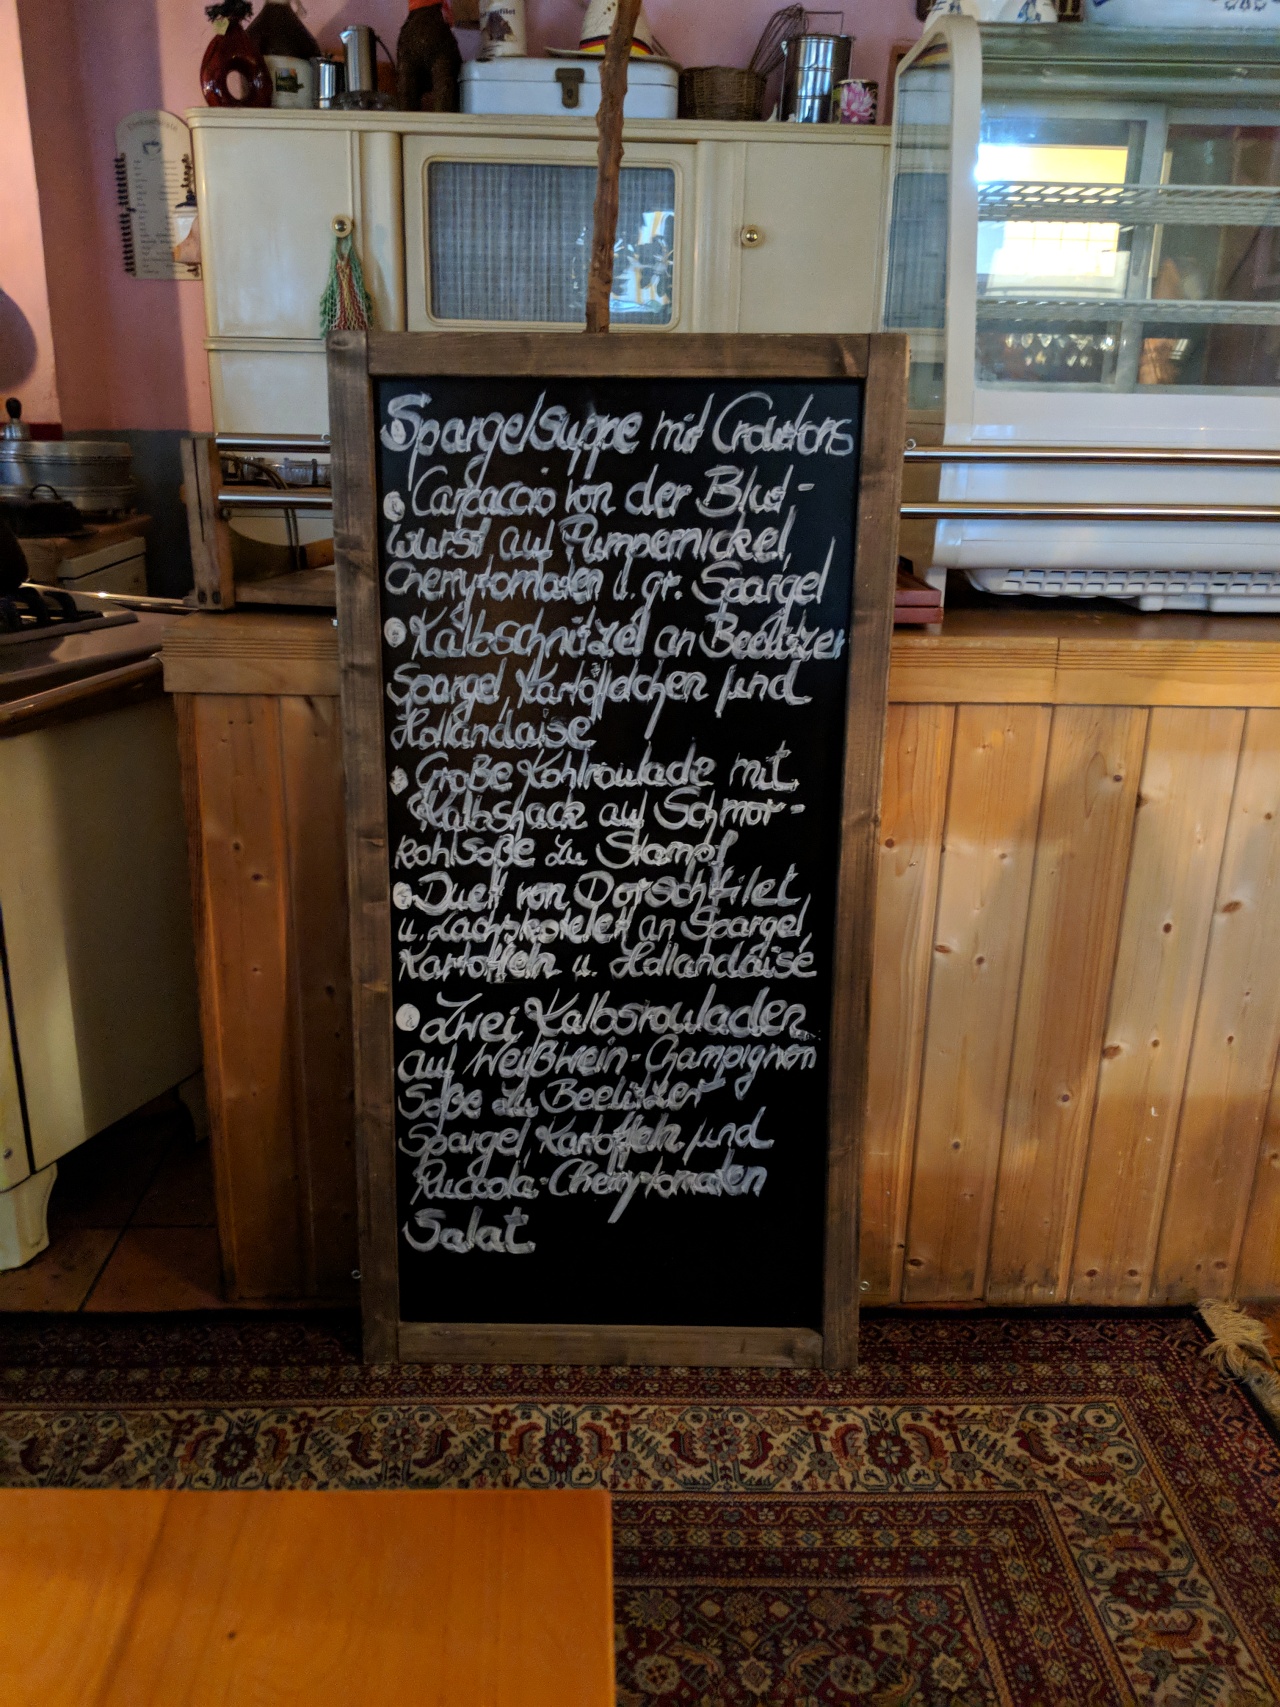 Spargelsuppe mit Croutons
Carpaccio von der Blut-
wurst auf Pumpernickel,
Cherrytomaten u. gr. Spargel
Kalbschnitzel an Beelitzer
Spargel, Kartöffelchen und
Hollandaise
Große Kohlroulade mit
Kalbshack auf Schmor-
kohlsoße zu Stampf
Duett von Dorschfilet
u. Lachskotelett an Spargel,
Kartoffeln u. Hollandaise
Zwei Kalbsrouladen
auf Weißwein-Champignon
Soße zu Beelitzer
Spargel, Kartoffeln und
Ruccola-Cherrytomaten
Salat